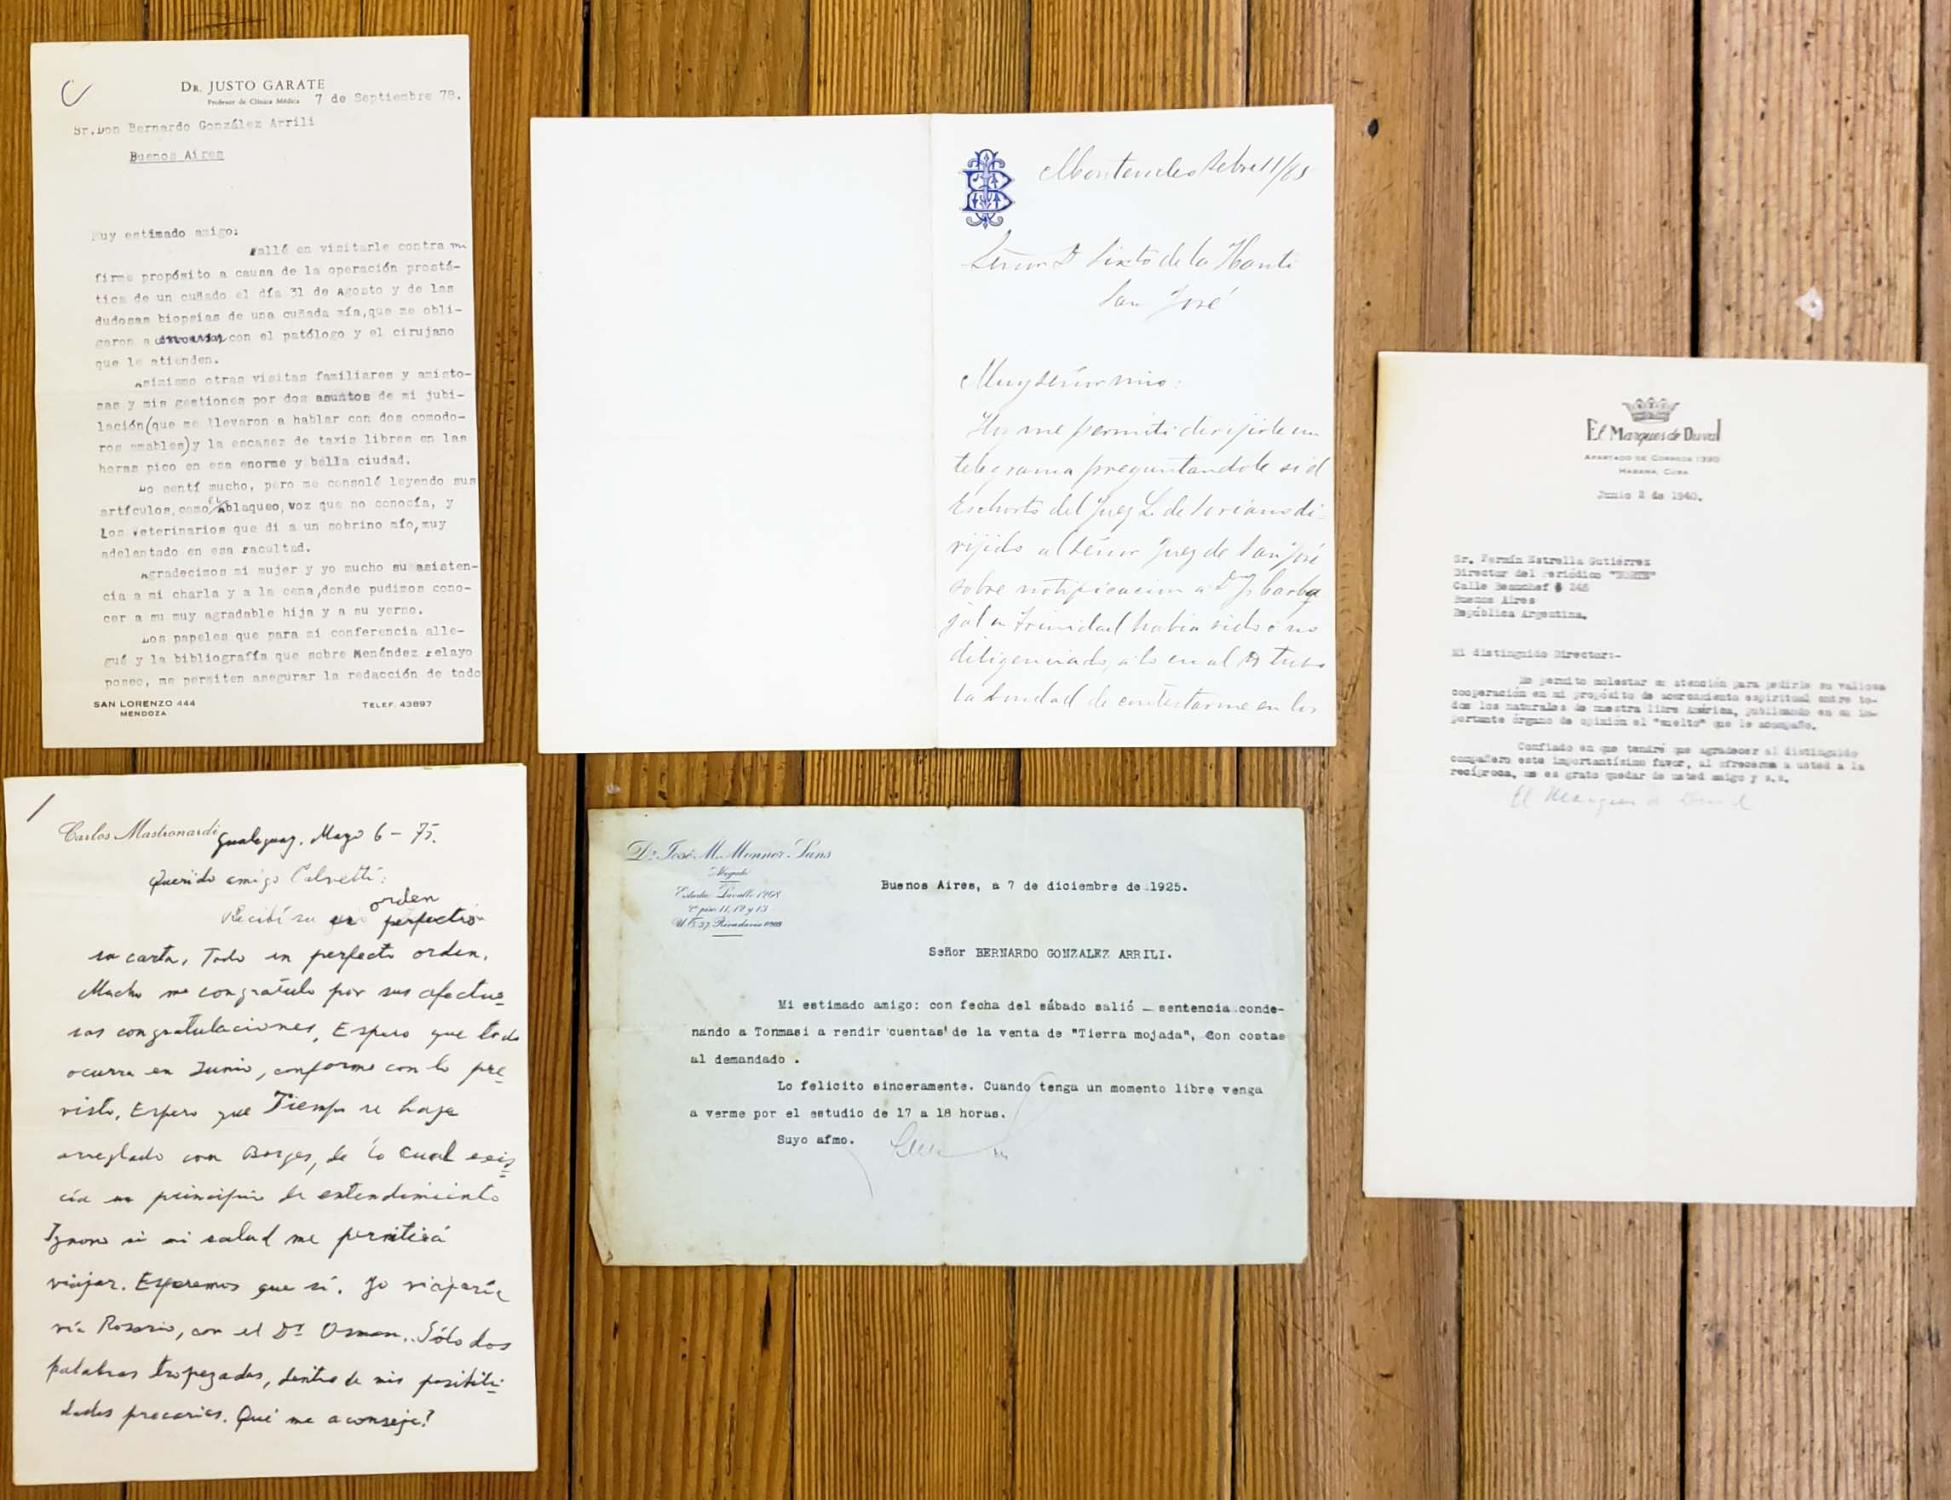 DR. JUSTO GARATE
Profesor de Clínica Médica
7 de Septiembre 78.
Sr.Don Bernardo González Arrili
Buenos Aires
Muy estimado amigo:
Fallé en visitarle contra mi
firme propósito a causa de la operación prostá-
tica de un cuñado el día 31 de Agosto y de las
dudosas biopsias de una cuñada mía,que me obli-
garon a con el patólogo y el cirujano
que le atienden.
Asimismo otras visitas familiares y amisto-
sas y mis gestiones por dos asuntos de mi jubi-
lación(que me llevaron a hablar con dos comodo-
ros amables)y la escasez de taxis libres en las
horas pico en esa enorme y bella ciudad.
Lo sentí mucho, pero me consolé leyendo sus
artículos,como El Ablaqueo,voz que no conocía, y
Los Veterinarios que di a un sobrino mío,muy
adelantado en esa Facultad.
Agradecimos mi mujer y yo mucho su asisten-
cia a mi charla y a la cena,donde pudimos cono-
cer a su muy agradable hija y a su yerno.
Los papeles que para mi conferencia alle-
gué y la bibliografía que sobre Menéndez Pelayo
poseo, me permiten asegurar la redacción de todo
SAN LORENZO 444
MENDOZA
TELEF. 43897
Montevideo
Señor D Sixto de la
San José
Muy señor mio:
Hoy me permiti dirijirle un
telegrama preguntandole si el
Exhorto del Juez L. de Soriano di-
rijido al Señor Juez de San José
sobre notificacion a
en Trinidad habia sido ó no
diligenciado, á lo cual tubo
la bondad de contestarme en los
El Marques de Duval
APARTADO DE CORREOS 1390
HABANA, CUBA
Junio 2 de 1940.
Sr. Fermín Estrella Gutiérrez
Director del Periódico "NORTE"
Calle Beauchef # 245
Buenos Aires
República Argentina.
Mi distinguido Director:-
Me permito molestar su atención para pedirle su valiosa
cooperación en mi propósito de acercamiento espiritual entre to-
dos los naturales de nuestra libre América, publicando en su im-
portante órgano de opinión el "suelto" que le acompaño.
Confiado en que tendré que agradecer al distinguido
compañero este importantísimo favor, al ofrecerme a usted a la
recíproca, me es grato quedar de usted amigo y s.s.
El Marques de Duval
Carlos Mastronardi
Gualeguay, Mayo 6 - 75.
Querido amigo Calvetti:
orden
Recibí su en perfecto
su carta, Todo en perfecto orden.
Mucho me congratulo por sus afectuo-
sas congratulaciones, Espero que todo
ocurra en Junio, conforme con lo pre-
visto, Espero que Tiempo se haya
arreglado con Borges, de lo cual exis-
tía un principio de entendimiento
Ignoro si mi salud me permitirá
viajar. Esperemos que sí. Yo viajaría
vía Rosario, con el Dr Osman.. Sólo dos
palabras tropezadas, dentro de mis posibili-
dades precarias. Qué me aconseja?
Dr. José M. Monner Sans
Abogado
Estudio: Lavalle 1268
2º piso 11, 12 y 13
Buenos Aires, a 7 de diciembre de 1925.
Señor BERNARDO GONZALEZ ARRILI.
Mi estimado amigo: con fecha del sábado salió — sentencia conde-
nando a Tommasi a rendir cuentas de la venta de "Tierra mojada", con costas
al demandado .
Lo felicito sinceramente. Cuando tenga un momento libre venga
a verme por el estudio de 17 a 18 horas.
Suyo afmo.